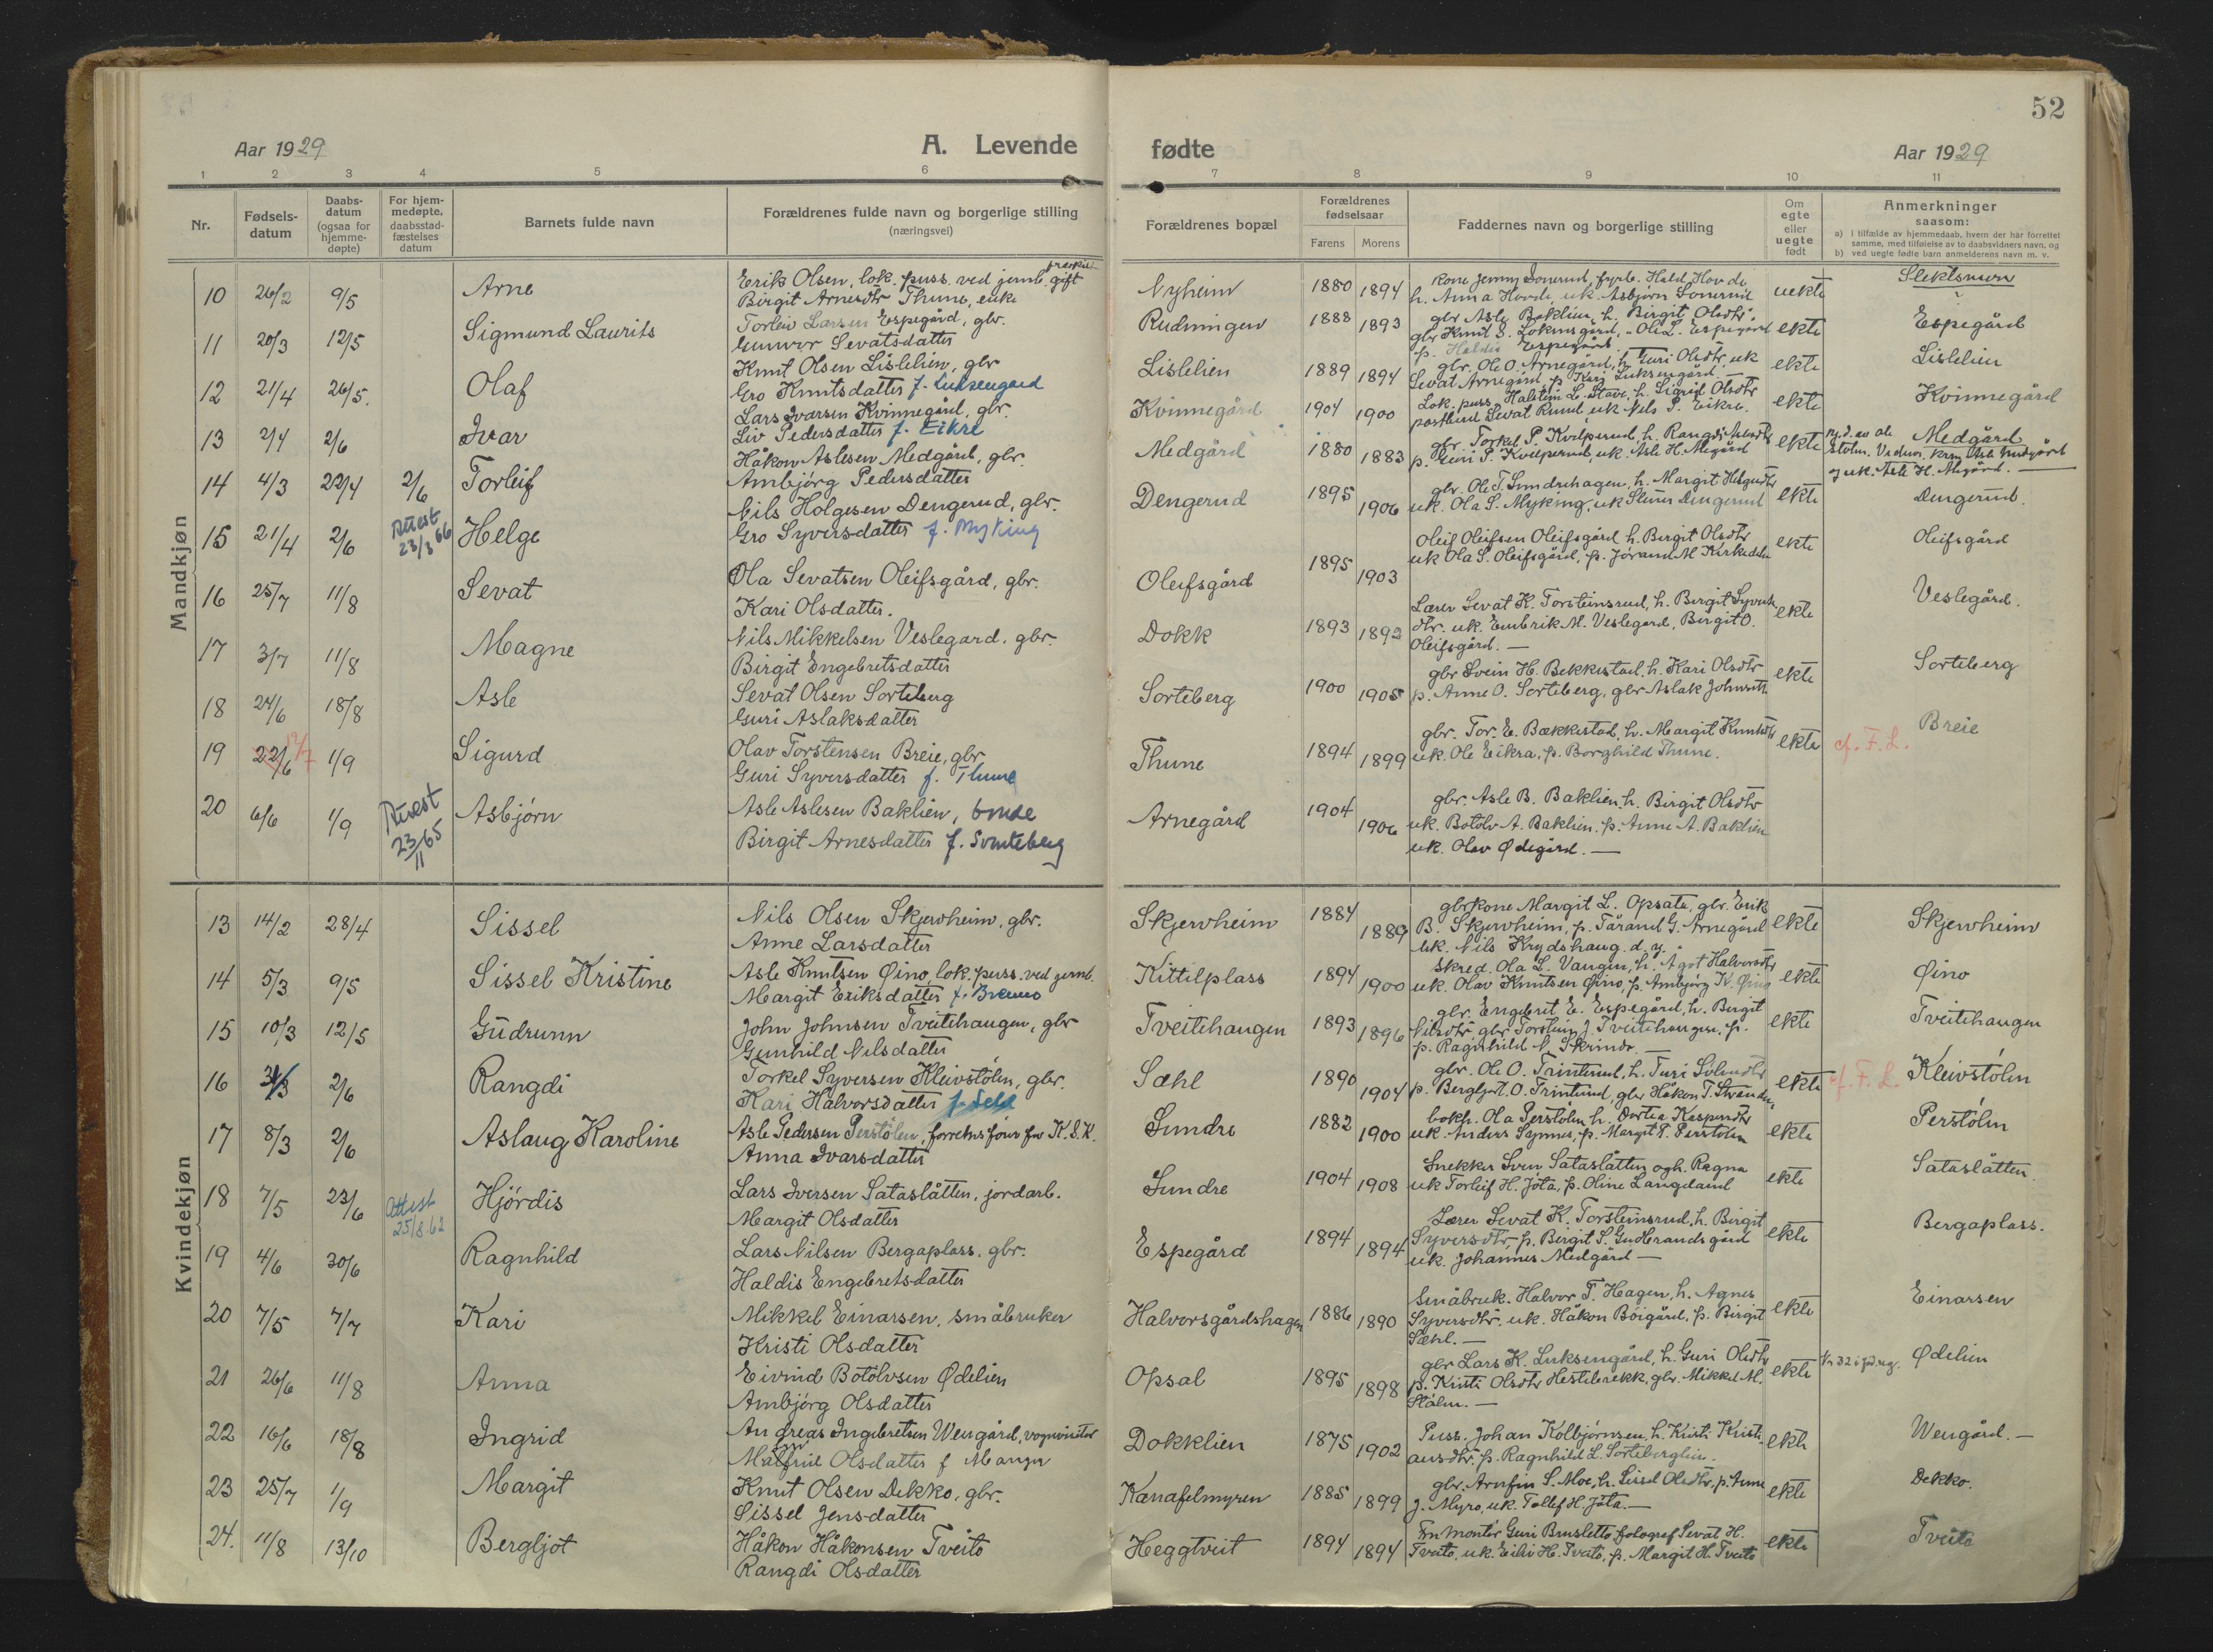 52
Aar 1929
A. Levende
fødte
Aar 1929
1 2 3 4 5 6 7 8 9 10 11
Nr.
Fødsels-
datum
Daabs-
datum
(ogsaa for
hjemme-
døpte)
For hjem-
medøpte,
daabsstad-
fæstelses
datum
Barnets fulde navn
Forældrenes fulde navn og borgerlige stilling
(næringsvei)
Forældrenes bopæl
Forældrenes
fødselsaar
Farens Morens
Faddernes navn og borgerlige stilling
Om
egte
eller
uegte
født
Anmerkninger
saasom:
a) I tilfælde av hjemmedaab, hvem der har forrettet
samme, med tilføielse av to daabsvidners navn, og
b) ved uegte fødte barn anmelderens navn m. v.
Mandkjøn
10 26/2 9/5 Arne
Erik Olsen, lok. puss. ved jernb. gift
Birgit Arnesdtr Thune, enke
Nyheim 1880 1894
kone Jenny Sonerud, fyrb. Hald. Hovde
h. Anna Hovde, uk. Asbjørn Sonerud
uekte
11 20/3 12/5 Sigmund Laurits
Torleiv Larsen Espegård, gbr.
Gunvor Sevatsdatter
Rudningen 1888 1893
gbr Asle Baklien, h. Birgit Olsdtr.
gbr Knut S. Lokensgård, Ole L. Espegård
p. Haldis Espegård
ekte Espegård
12 21/4 26/5. Olaf
Knut Olsen Lislelien, gbr
Gro Knutsdatter f. Luksengaard
Lislelien 1889 1894
gbr. Ole O. Arnegård, h. Guri Olsdtr, uk
Sevat Arnegård, p. Kari Luksengård. —
ekte Lislelien
13 2/4 2/6 Ivar
Lars Ivarsen Kvinnegård, gbr.
Liv Pedersdatter f. Eikre
Kvinnegård 1904 1900
Lok. puss. Halstein L. Stave, h. Sigrid Olsdtr
postbud Sevat Ruud uk Nels P. Eikre.
ekte Kvinnegård
14 4/3 22/4 2/6 Torleif
Håkon Aslesen Medgård, gbr.
Ambjørg Pedersdatter
Medgård 1880 1883
gbr. Torkel P. Kvelprud, h. Rangdi Aslesdtr
p. Guri P. Kvelprud, uk. Asle H. Megård
ekte Medgård
15 21/4 2/6 Attest
23/3 66 Helge
Nils Holgesen Dengerud, gbr.
Gro Syversdatter f. Myking
Dengerud 1895 1906
gbr. Ole T. Sundrehagen, h. Margit Helgesdtr
uk. Ola S. Myking, uk Steinar Dengerud
ekte Dengerud.
16 25/7 11/8 Sevat
Ola Sevatsen Oleifsgård, gbr.
Kari Olsdatter.
Oleifsgård 1895 1903
Oleif Oleifsen Oleifsgård h. Birgit Olsdtr
uk Ola S. Oleifsgård, p. Jørand M. Kirkedelen
ekte Oleifsgård
17 3/7 11/8 Magne
Nils Mikkelsen Veslegard. gbr.
Birgit Engebretsdatter
Dokk 1893 1892
Lærer Sevat K. Torsteinsrud, h. Birgit Syvers
dtr. uk. Embrik M. Veslegard, Birgit O.
Oleifsgård. —
ekte Veslegård.
18 24/6 18/8 Asle
Sevat Olsen Sorteberg
Guri Aslaksdatter
Sorteberg 1900 1905
gbr Svein H. Bekkestad, h. Kari Olsdtr
p. Anne O. Sorteberg, gbr Aslak Johnsett
ekte Sorteberg
19 22/6 12/7 1/9 Sigurd
Olav Torstensen Breie, gbr
Guri Syversdatter f. Thune
Thune 1894 1899
gbr. Tor. E. Bækkestad, h. Margit Knutsdtr
uk. Ole Eikra, p. Borghild Thune.
ekte cf. F. L. Breie
20 6/6 1/9 Attest
23/11 65 Asbjørn
Asle Aslesen Baklien, bonde
Birgit Arnesdatter f. Svarteberg
Arnegård 1904 1906
gbr. Asle B. Baklien, h. Birgit Olsdtr
uk. Botolv A. Baklien, p. Anne A. Baklien
uk. Olav Ødegård. —
Kvindekjøn
13 14/2 28/4 Sissel
Nils Olsen Skjervheim, gbr.
Anne Larsdatter
Skjervheim 1884 1889
gbrkone Margit L. Opsata, gbr. Erik
B. Skjervheim, p. Tårand G. Arnegård
uk. Nils Krydshaug. d. y.
ekte Skjervheim
14 5/3 9/5 Sissel Kristine
Asle Knutsen Øino, lok. puss. ved jernb.
Margit Eriksdatter f. Bremo
Kittilplass 1894 1900
Skred. Ola L. Vangen, h. Ågot Halvorsdtr
uk. Olav Knutsen Øino, p. Ambjørg K. Øino
ekte Øino
15 10/3 12/5 Gudrunn
John Johnsen Tveitehaugen, gbr
Gunhild Nilsdatter
Tveitehaugen 1893 1896
gbr. Engebret E. Espegård, h. Birgit
Nilsdtr. gbr Torstein J. Tveitehaugen, p.
p. Ragnhild N. Skrindo. —
ekte Tveitehaugen
16 31/3 2/6 Rangdi
Torkel Syversen Kleivstølen, gbr.
Kari Halvorsdatter
Sæhl 1890 1904
gbr. Ole O. Trintrud, h. Turi
p. Bergljot O. Trintrud, gbr Håkon T. Stranden
ekte cf. F. L. Kleivstølen
17 8/3 2/6 Aslaug Karoline
Asle Pedersen Perstølen, forretn.s fører for K. S. K.
Anna Ivarsdatter
Sundre 1882 1900
bokh. Ola Perstølen h. Dortea Kaspersdtr
uk. Anders Synnes, p. Margit P. Perstølen
ekte Perstølen
18 7/5 23/6 Attest
25/8.62 Hjørdis
Lars Iversen Sataslåtten, jordarb.
Margit Olsdatter
Sundre 1904 1908
Snekker Sven Sataslåtten og h. Ragna
uk Torleif H. Jota, p. Oline Langeland
ekte Sataslåtten
19 4/6 30/6 Ragnhild
Lars Nilsen Bergaplass. gbr.
Haldis Engebretsdatter
Espegård 1894 1894
Lærer Sevat K. Torsteinsrud, h. Birgit
Syversdtr, p. Birgit S. Gudbrandsgård
uk. Johannes Medgård —
ekte Bergaplass.
20 7/5 7/7 Kari
Mikkel Einarsen, småbruker
Kristi Olsdatter
Halvorsgårdshagen 1886 1890
Småbruk. Halvor T. Hagen, h. Agnes
Syversdtr. uk. Håkon Bøigård, p. Birgit
Sæhl. —
ekte Einarsen
21 26/6 11/8 Anna
Eivind Botolvsen Ødelien
Ambjørg Olsdatter
Opsal 1895 1898
gbr Lars K. Luksengård, h. Guri Olsdtr
p. Kristi Olsdtr Hestebrekk, gbr. Mikkel M.
Stølen. —
ekte Ødelien
22 16/6 18/8 Ingrid
Andreas Ingebretsen Wengård, vognvisitør
Olsdatter f
Dokklien 1875 1902
Puss. Johan Kolbjørnsen, h. Kristi Kristi-
ansdtr. p. Ragnhild L. Sorteberglien.
ekte Wengård. —
23 25/7 1/9 Margit
Knut Olsen Dekko, gbr.
Sissel Jensdatter
Kanafelmyren 1885 1899
gbr. Arnfinn S. Moe, h. Sissel Olsdtr, p. Anne
J. Myro, uk. Tollef H. Jota. —
ekte Dekko.
24. 11/8 13/10 Bergljot
Håkon Håkonsen Tveito
Rangdi Olsdatter
Heggtveit 1894 1894
Fru Montør Guri Brusletto fotograf Sevat H.
Tveito, uk. Eiliv H. Tveito, p. Margit H. Tveito
ekte Tveito